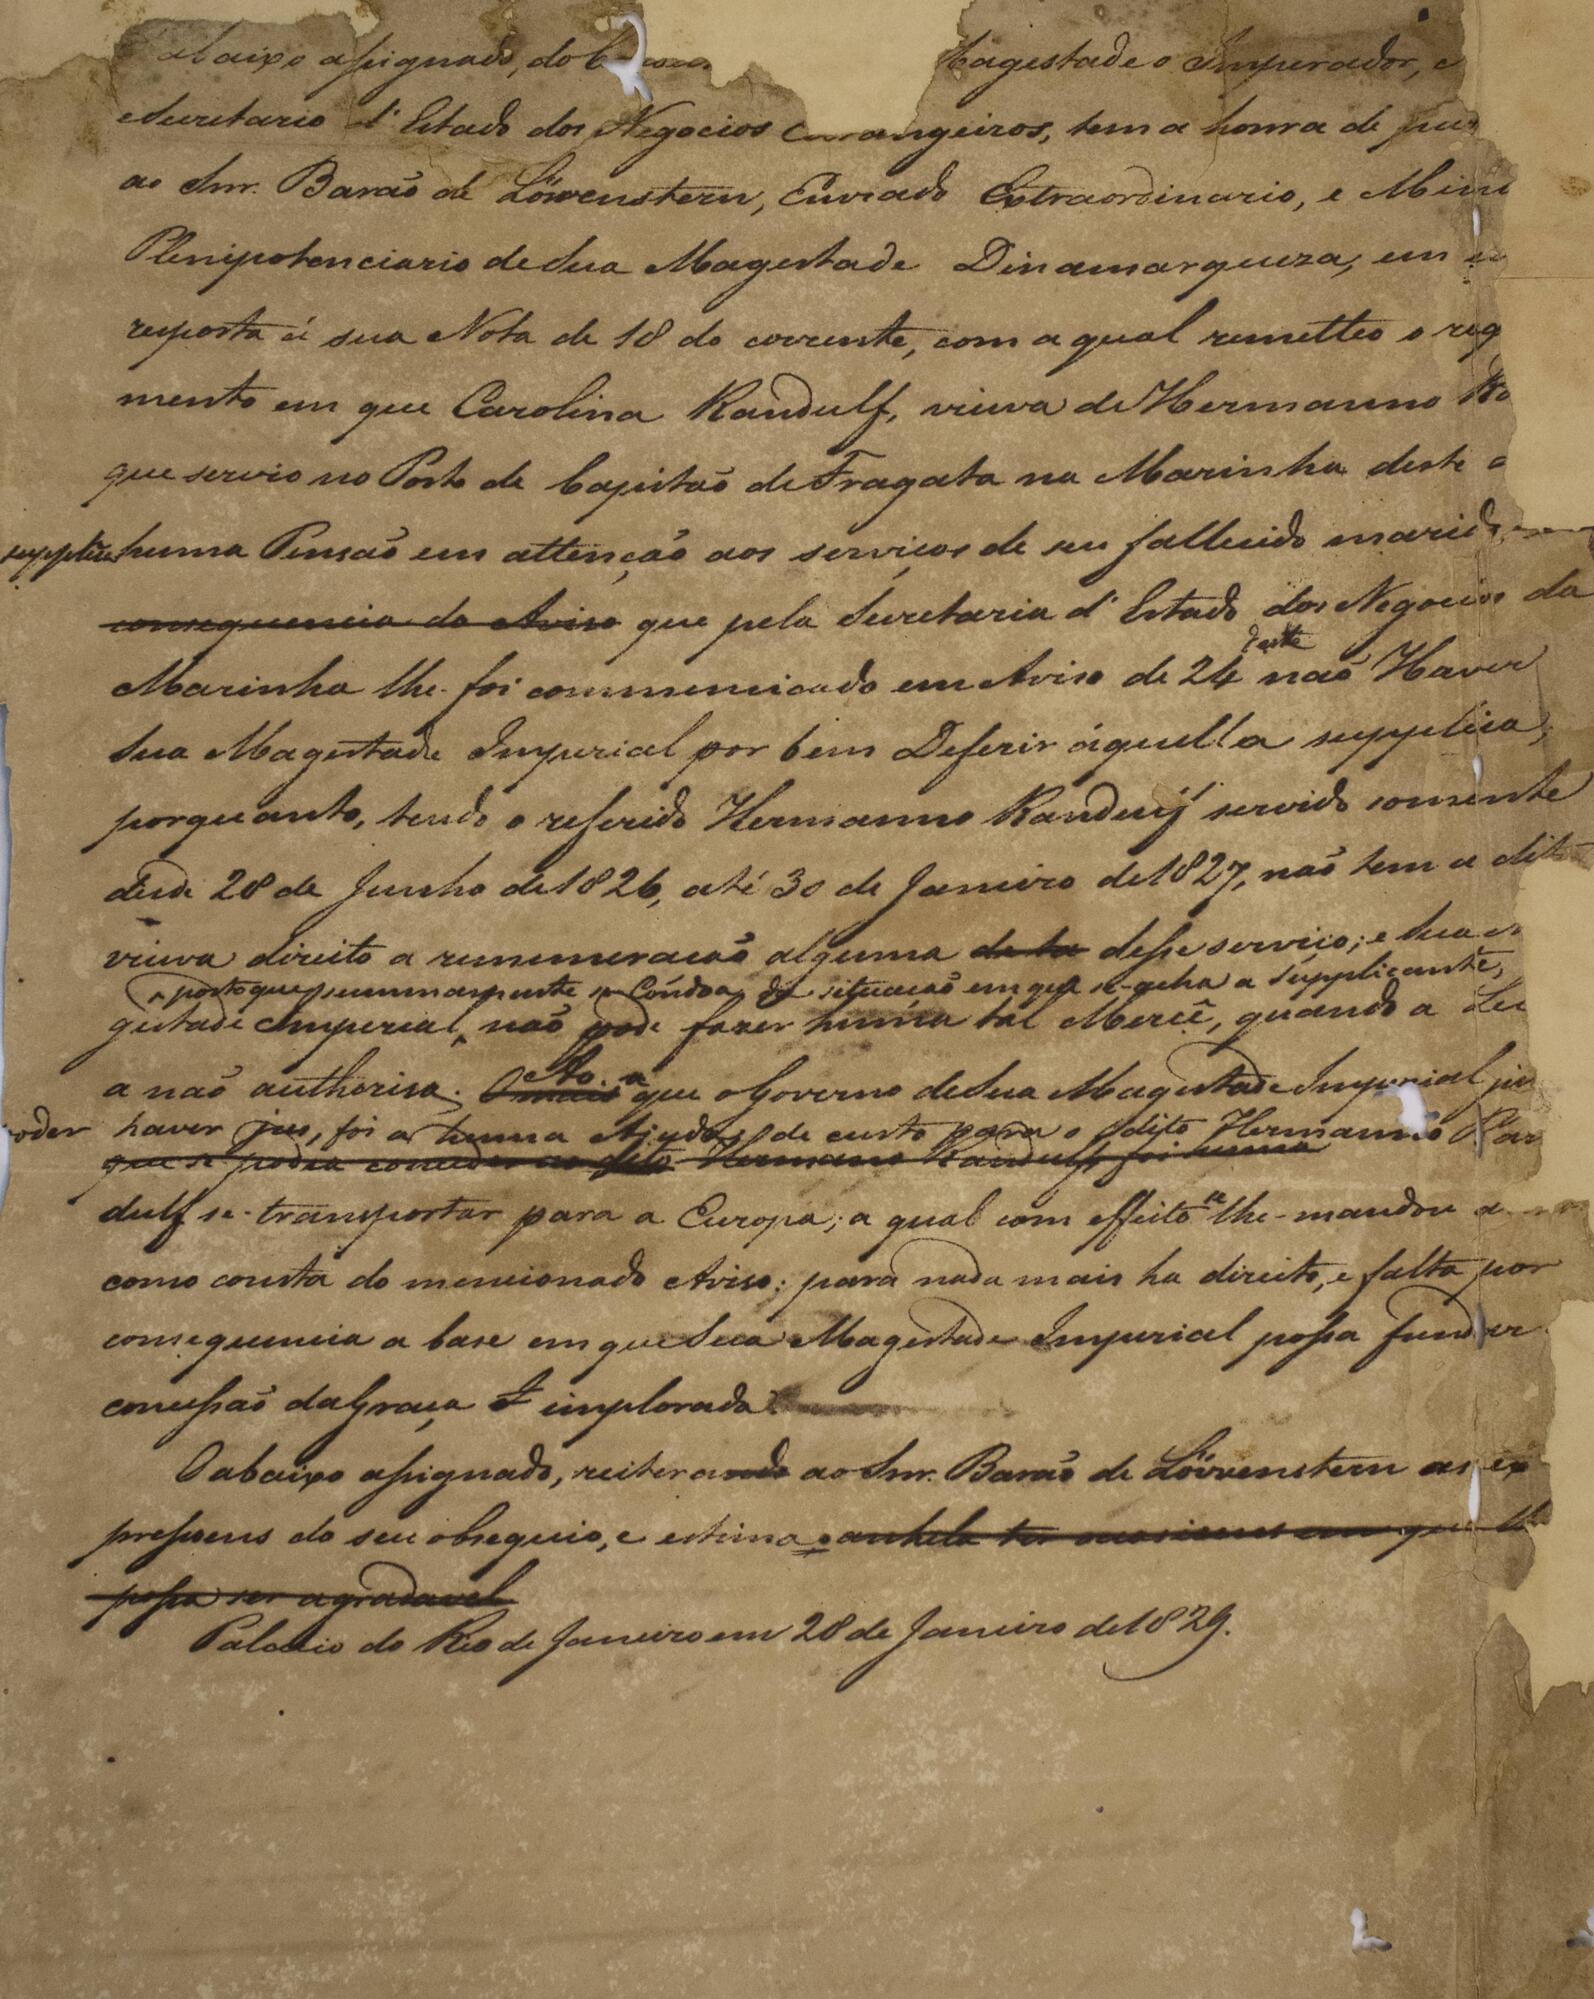 abaixo assignado, do Magestade o Imperador, e
Secretario d'Estado dos Negocios angeiros, tem a honra de
ao Snr. Barão de Löwenstern, Enviado Extraordinario, e Mini
Plenipotenciario de Sua Magestade Dinamarqueza, em
resposta á sua Nota de 18 do corrente, com a qual remetteo o
mento em que Carolina Randulf, viuva de Hermanno
que servio no Posto de Capitão de Fragata na Marinha deste
supplica huma Pensão em attenção aos serviços de seu fallecido marido
consequencia do Aviso que pela Secretaria d'Estado dos Negocios da
deste
Marinha lhe foi communicado em Aviso de 24 não Haver
Sua Magestade Imperial por bem Deferir áquella supplica;
porquanto, tendo o referido Hermanno Randulf servido somente
desde 28 de Junho de 1826, até 30 de Janeiro de 1827, não tem a dita
viuva direito a remuneração alguma desse serviço; e Sua
postoque summamente se Côndoa da situação em que se-acha a Supplicante,
gestade Imperial, não pode fazer huma tal Mercê, quando a Lei
a não authorisa. que o Governo de Sua Magestade Imperial
poder haver jus, foi a huma Ajuda de custo para o dito Hermanno Ran
que se podia conceder ao dito Hermano Randulf foi huma
dulf se-transportar para a Europa; a qual com effeito se lhe-mandou
como consta do mencionado Aviso; para nada mais ha direito, e falta por
consequencia a base em que Sua Magestade Imperial possa fundar
concessão da Graça implorada.
O abaixo assignado, reitera ao Snr. Barão de Löwenstern as ex
pressoens do seu obsequio, e estima anhela ter occasioens em que
possa ser agradavel
Palacio do Rio de Janeiro em 28 de Janeiro de 1829.